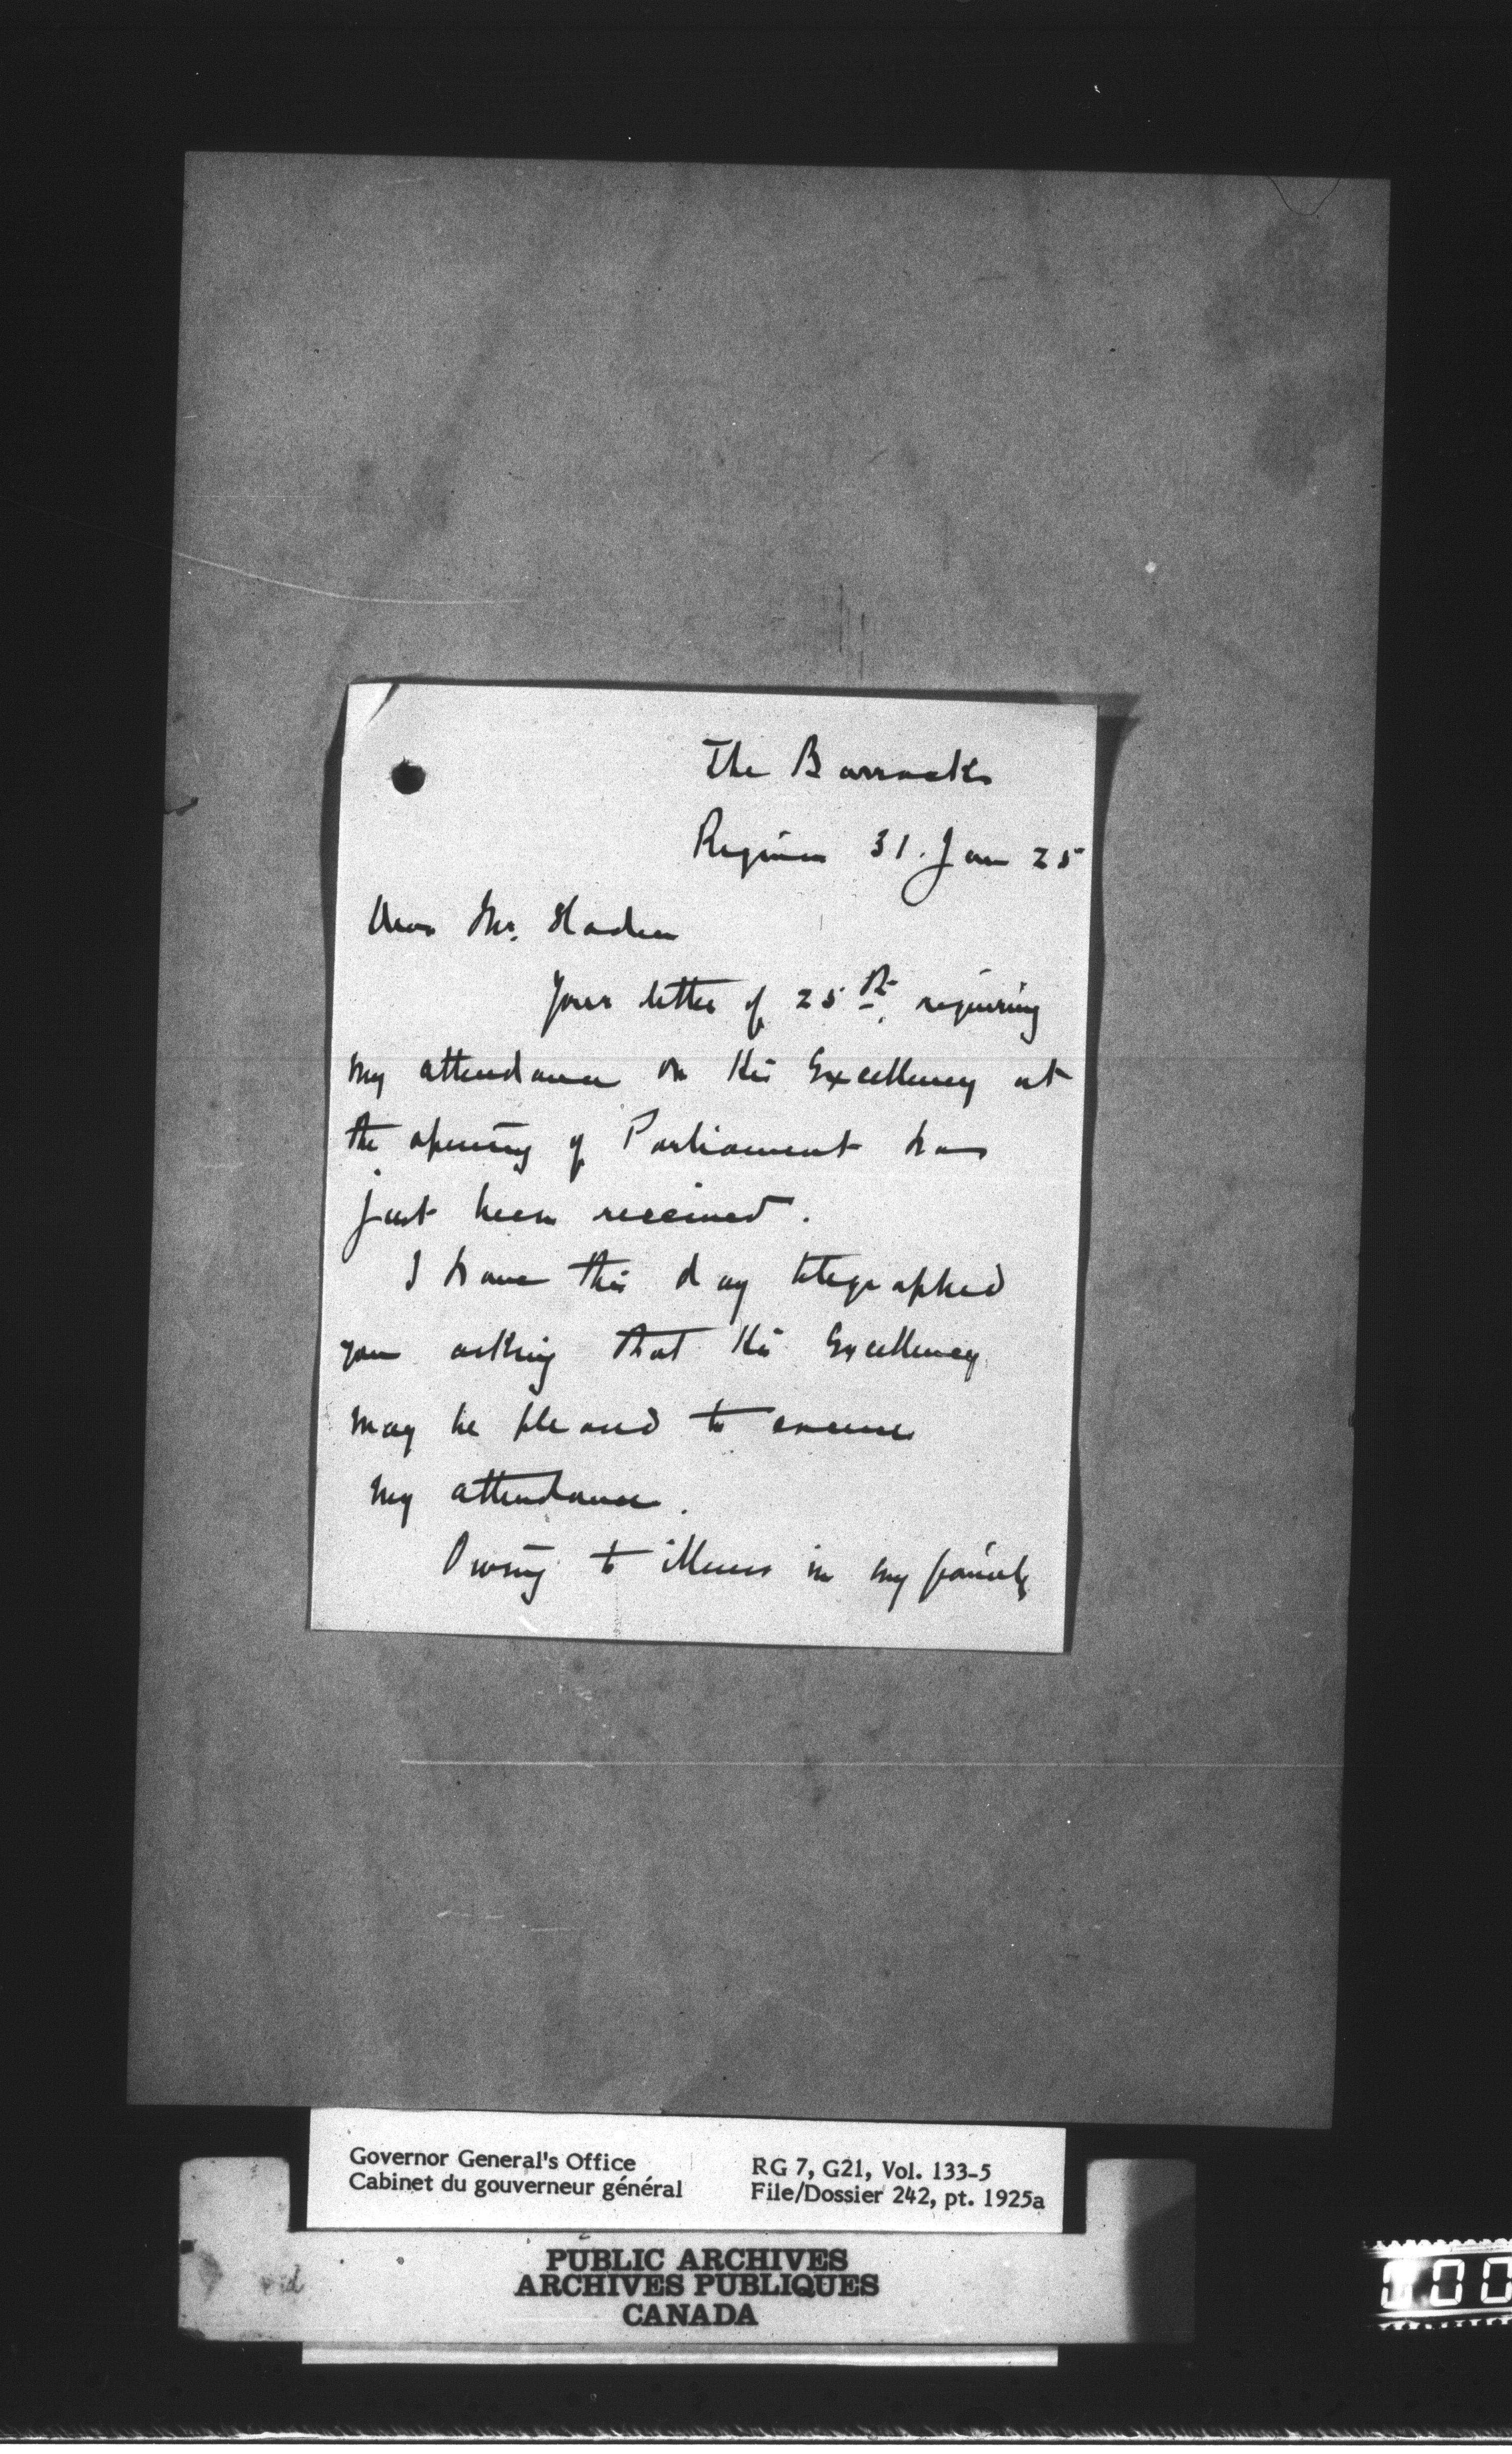 The Barracks
Regina 31. Jan 25
Dear Mr. Sladen
Your letter of 25th. requiring
my attendance on His Excellency at
the opening of Parliament has
just been received.
I have this day telegraphed
you asking that His Excellency
may be pleased to excuse
my attendance.
Owing to illness in my family
Governor General's Office
Cabinet du gouverneur général
RG 7, G21, Vol. 133-5
File/Dossier 242, pt. 1925a
PUBLIC ARCHIVES
ARCHIVES PUBLIQUES
CANADA